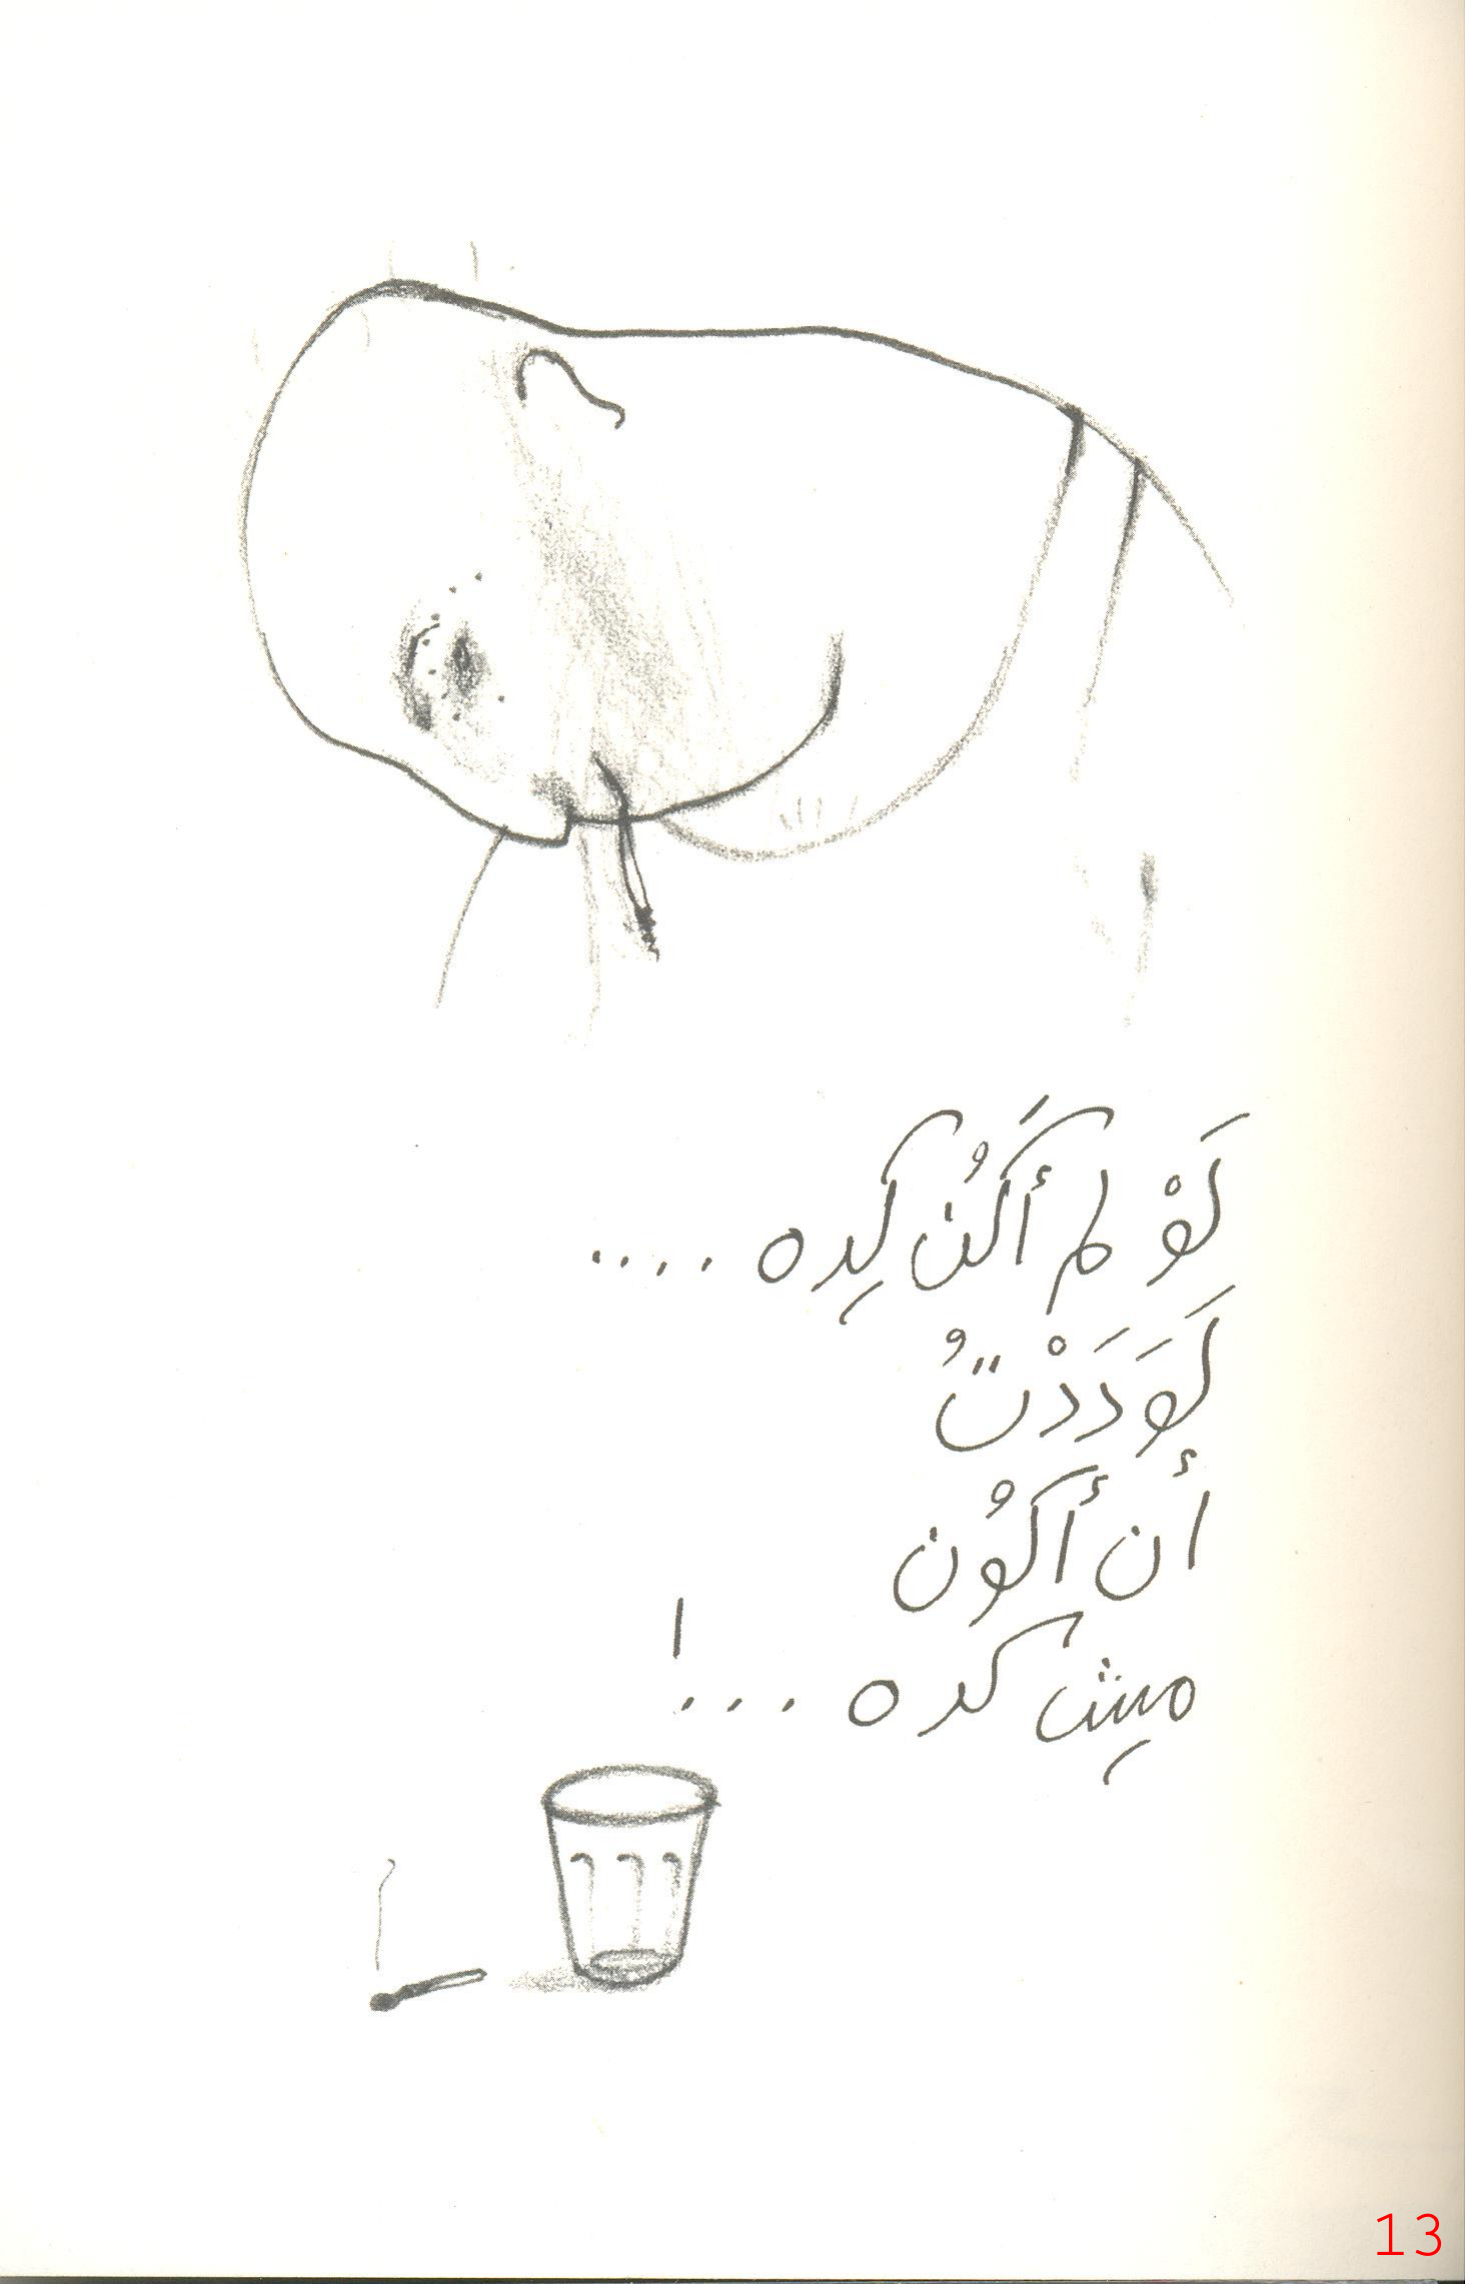 لَوْ لم أَكَُن كِده ....
لَوَدَدْتُ
أن أكوُن
مِيش كده ...!
13